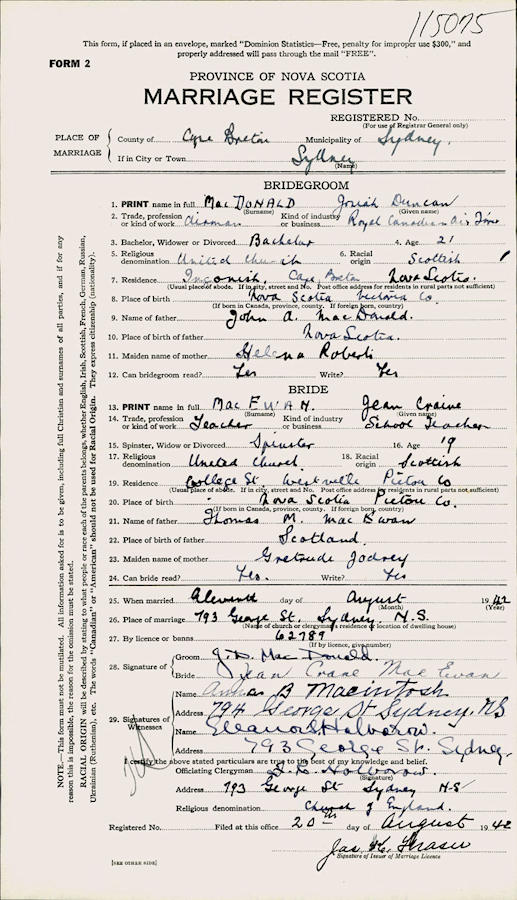 115075
This form, if placed in an envelope, marked "Dominion Statistics—Free, penalty for improper use $300," and
properly addressed will pass through the mail "FREE".
FORM 2
PROVINCE OF NOVA SCOTIA
MARRIAGE REGISTER
REGISTERED No.
(For use of Registrar General only)
PLACE OF MARRIAGE
County of Cape Breton Municipality of Sydney.
If in City or Town Sydney
(Name)
BRIDEGROOM
1. PRINT name in full MacDONALD Josiah Duncan
(Surname) (Given name)
2. Trade, profession or kind of work airman Kind of industry or business Royal Canadian Air Force
3. Bachelor, Widower or Divorced Bachelor 4. Age 21
5. Religious denomination United Church 6. Racial origin Scottish
7. Residence Ingonish, Cape Breton Nova Scotia.
(Usual place of abode. If in city, street and No. Post office address for residents in rural parts not sufficient)
8. Place of birth Nova Scotia Victoria Co.
(If born in Canada, province, county. If foreign born, country)
9. Name of father John A. MacDonald.
10. Place of birth of father Nova Scotia.
11. Maiden name of mother Helena Roberts
12. Can bridegroom read? Yes Write? Yes
BRIDE
13. PRINT name in full MacEWAN. Jean Craine
(Surname) (Given name)
14. Trade, profession or kind of work Teacher Kind of industry or business School Teacher
15. Spinster, Widow or Divorced Spinster 16. Age 19
17. Religious denomination United Church 18. Racial origin Scottish
19. Residence College St. Westville Pictou Co
(Usual place of abode. If in city, street and No. Post office address for residents in rural parts not sufficient)
20. Place of birth Nova Scotia Pictou Co.
(If born in Canada, province, county. If foreign born, country)
21. Name of father Thomas M. MacEwan
22. Place of birth of father Scotland.
23. Maiden name of mother Gretrude Jodrey
24. Can bride read? Yes. Write? Yes
25. When married Eleventh day of August 1942
(Month) (Year)
26. Place of marriage 793 George St. Sydney N.S.
(Name of church or clergyman's residence or location of dwelling house)
27. By licence or banns 62789
(If by licence, give number)
28. Signature of Groom J.D. MacDonald.
Bride Jean Crane MacEwan
29. Signatures of Witnesses
Name B Macintosh
Address 794 George St Sydney, NS
Name Eleanor Holvorow.
Address 793 George St. Sydney.
I certify the above stated particulars are true to the best of my knowledge and belief.
Officiating Clergyman Holvorow.
(Signature)
Address 793 George St Sydney N.S
Religious denomination Church of England.
Registered No. Filed at this office 20th day of August 1942
Jas. Fraser
Signature of Issuer of Marriage Licence
[SEE OTHER SIDE]
NOTE.—This form must not be mutilated. All information asked for is to be given, including full Christian and surnames of all parties, and if for any
reason this is impossible, the reason for the omission must be stated.
RACIAL ORIGIN will be described by stating to what people or race each of the parents belongs, whether English, Irish, Scottish, French, German, Russian,
Ukrainian (Ruthenian), etc. The words "Canadian" or "American" should not be used for Racial Origin. They express citizenship (nationality).